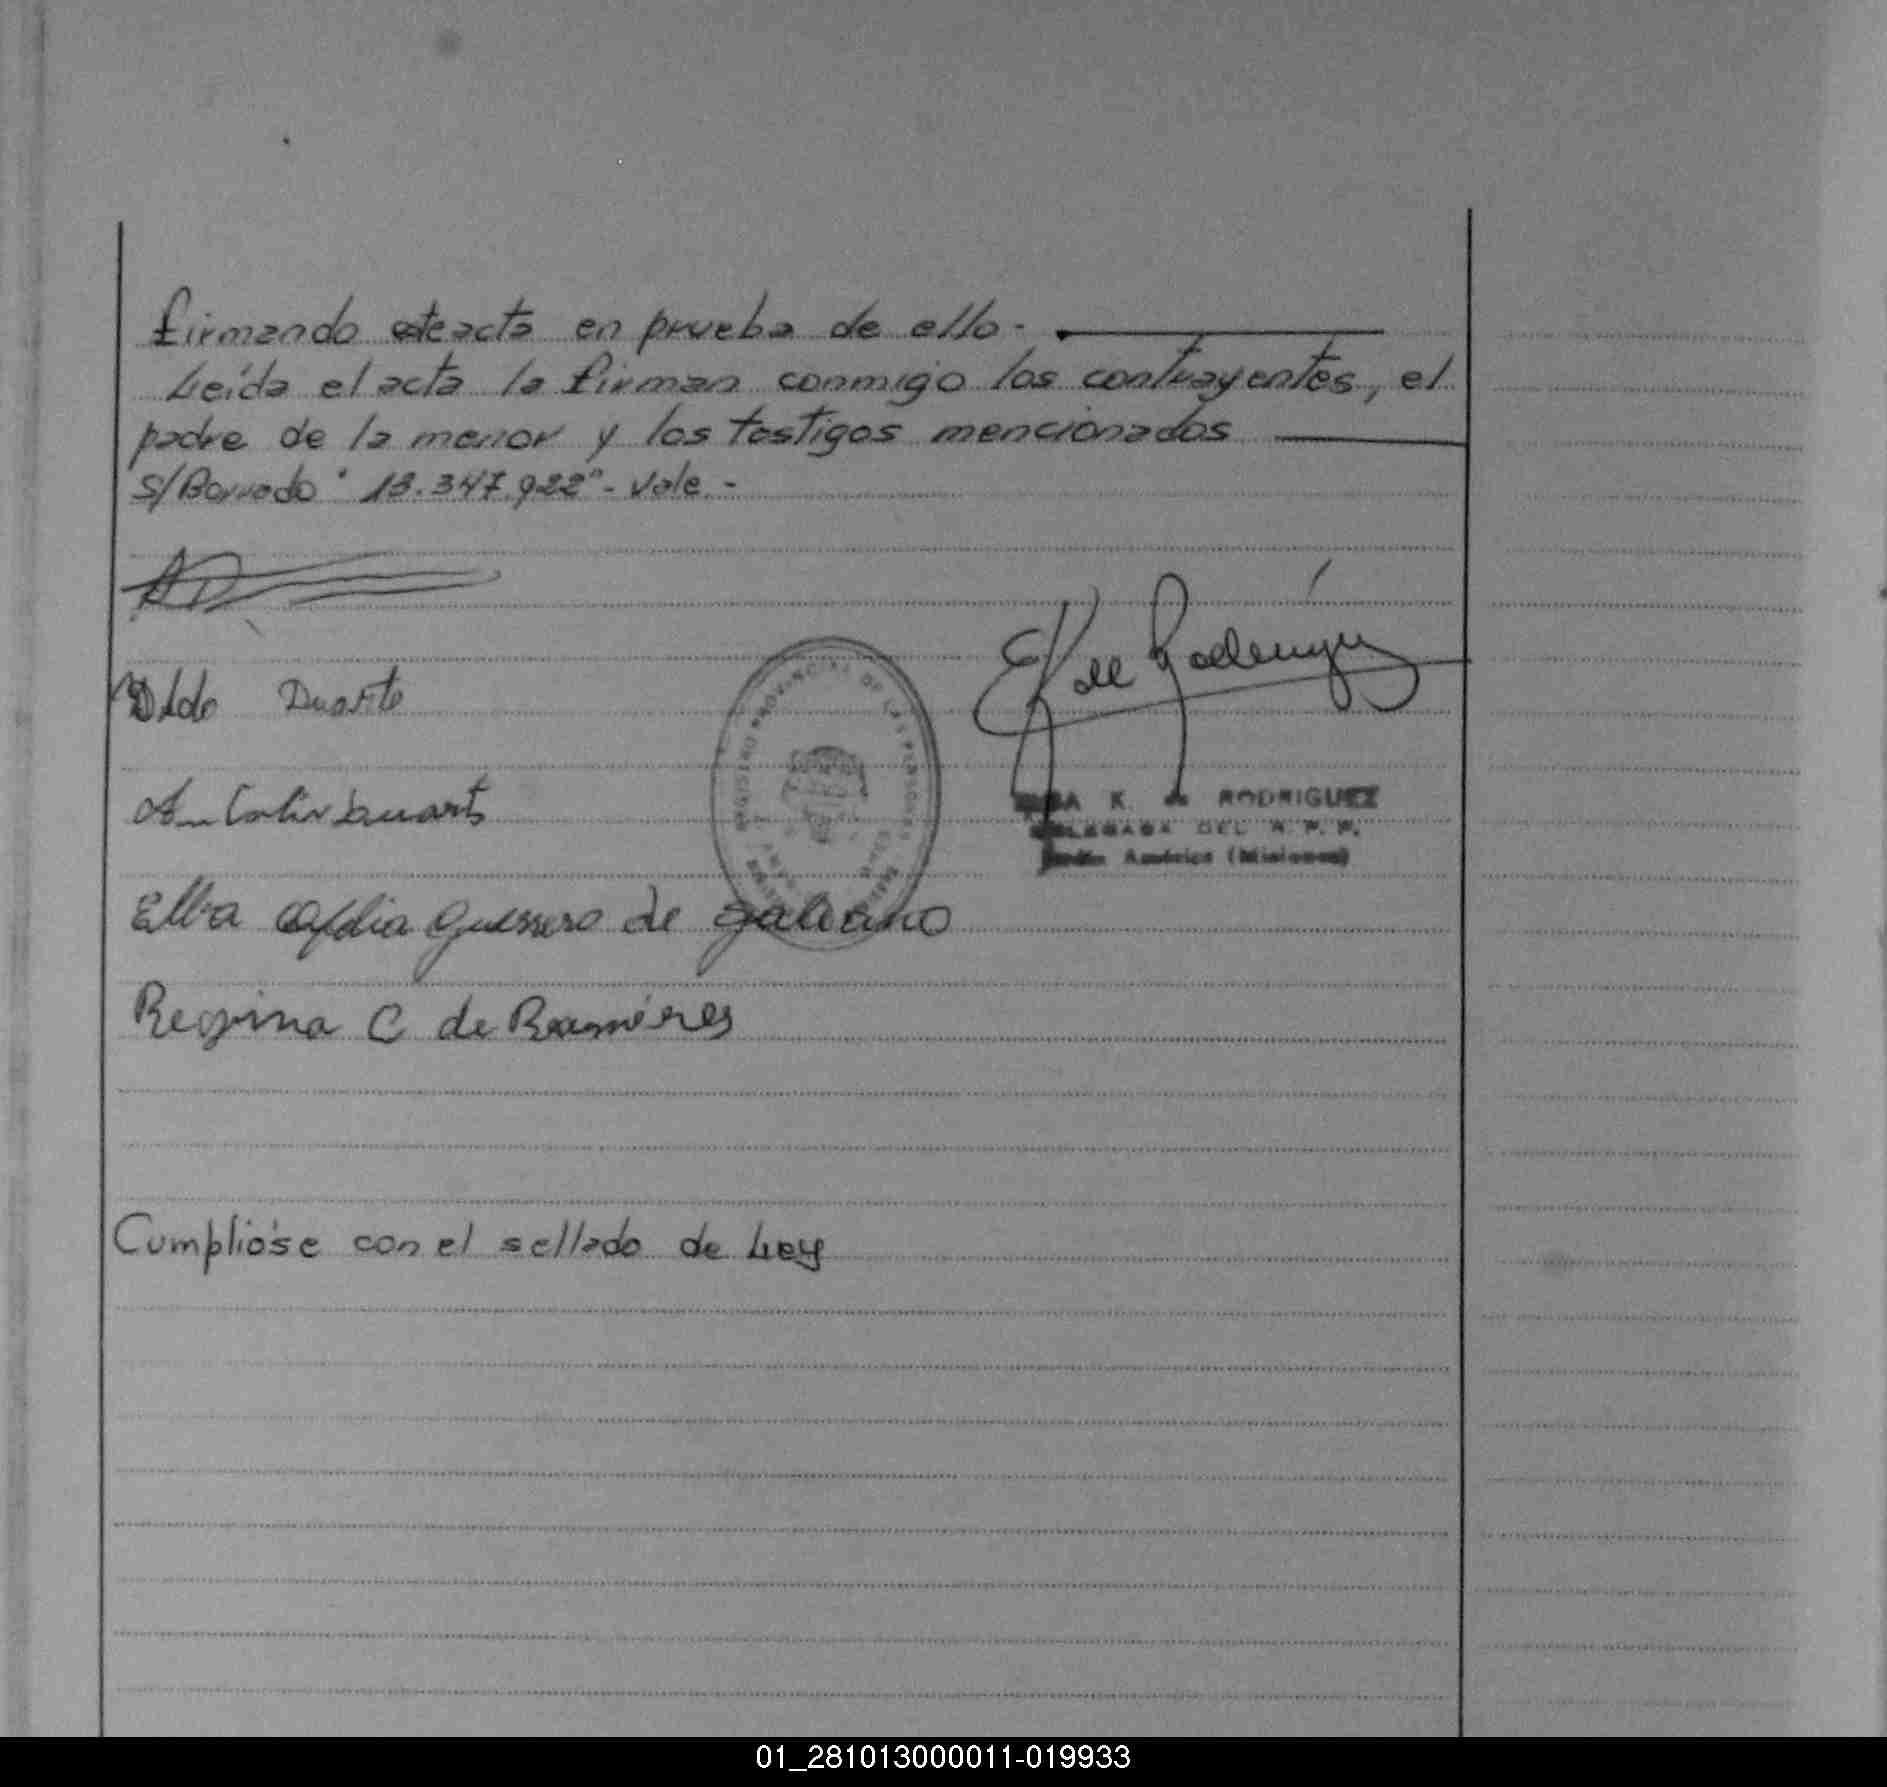 firmando este acta en prueba de ello.-
Leída el acta la firman conmigo los contrayentes, el
padre de la menor y los testigos mencionados
S/Borrado "13.347.922"- Vale.-
Duarte
Antolin Duarte
E K de Rodriguez
K. de RODRIGUEZ
DELEGADA DEL R. P. P.
Jardín América (Misiones)
REGISTRO PROVINCIAL DE LAS PERSONAS
Elba Guerrero de galeano
Regina C de Ramíres
Cumplióse con el sellado de Ley
01_281013000011-019933